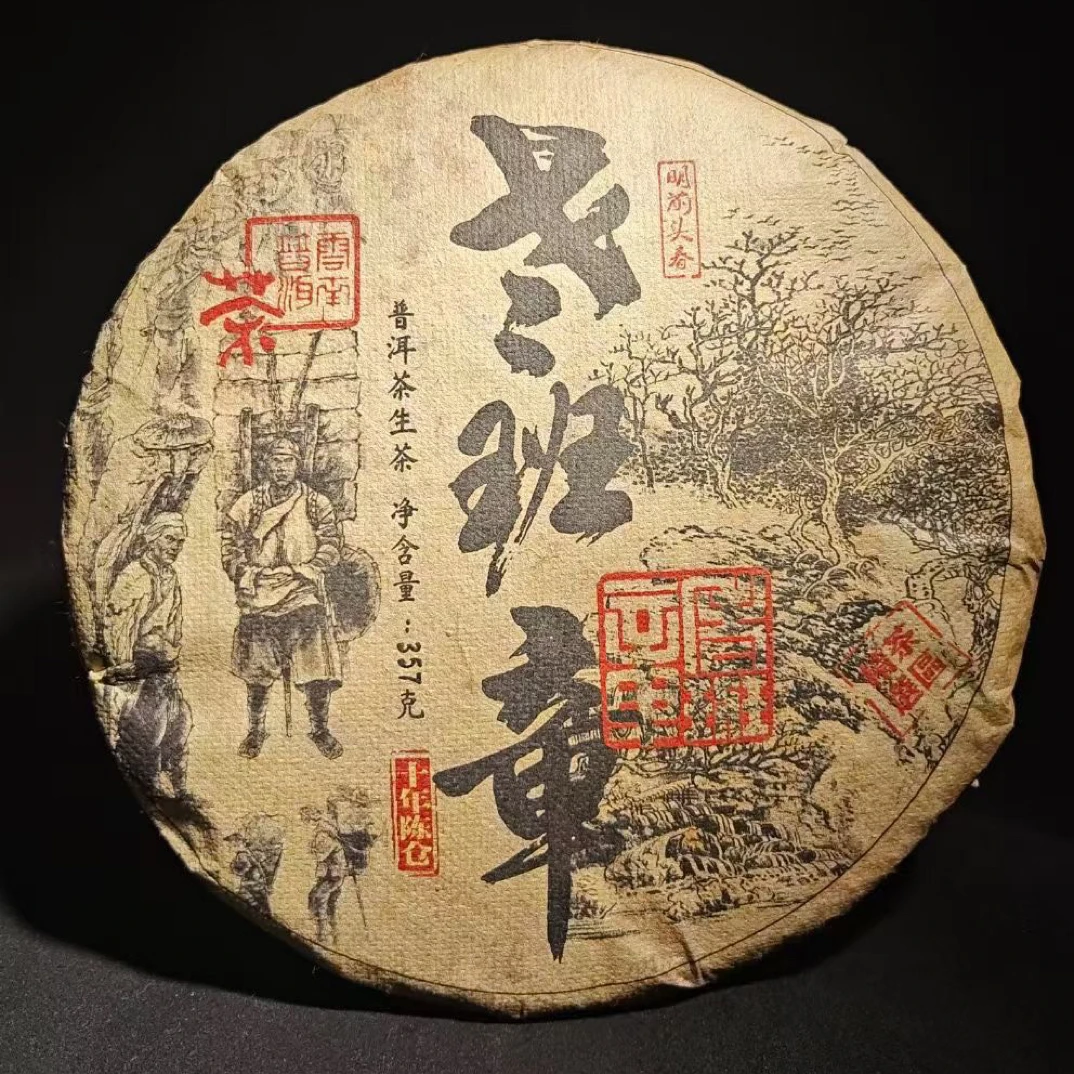 老班章
明前头春
雲南
普洱
茶
普洱茶生茶 净含量：357克
十年陈仓
茶园